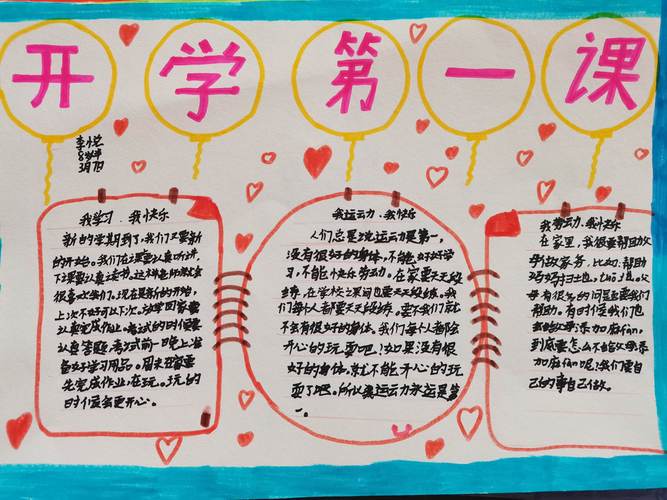 开学第一课
李悦
8岁半
3月7日
我学习、我快乐
新的学期到了,我们又要新
的开始。我们在课要认真听讲,
下课要认真读书,这样老师就会
很喜欢我们。现在是新的开始,
上次不好可以下次。放学回家要
认真完成作业。考试的时候要
认真答题,考试前一晚上准
备好学习用品。周末回家要
先完成作业,在玩。玩的
时候会更开心。
我运动、我快乐
人们总是说运动是第一,
没有很好的身体,不能好好学
习,不能快乐劳动。在家要天天锻
炼,在学校之课间也要天天锻炼。我
们每个人都要天天锻炼,要不我们就
不会有很好的身体。我们每个人都会
开心的玩耍吧!如果没有很
好的身体,就不能开心的玩
耍了吧。所以我运动永远是第
一。
我劳动、我快乐
在家里,我很要帮助父
母做家务,比如,帮助
妈妈扫地,
母有很多的问题要我们
帮助。有时候我们也
会给父母添加麻烦,
到底要怎么不给父母添
加麻烦呢?我们要自
己的事自己做。